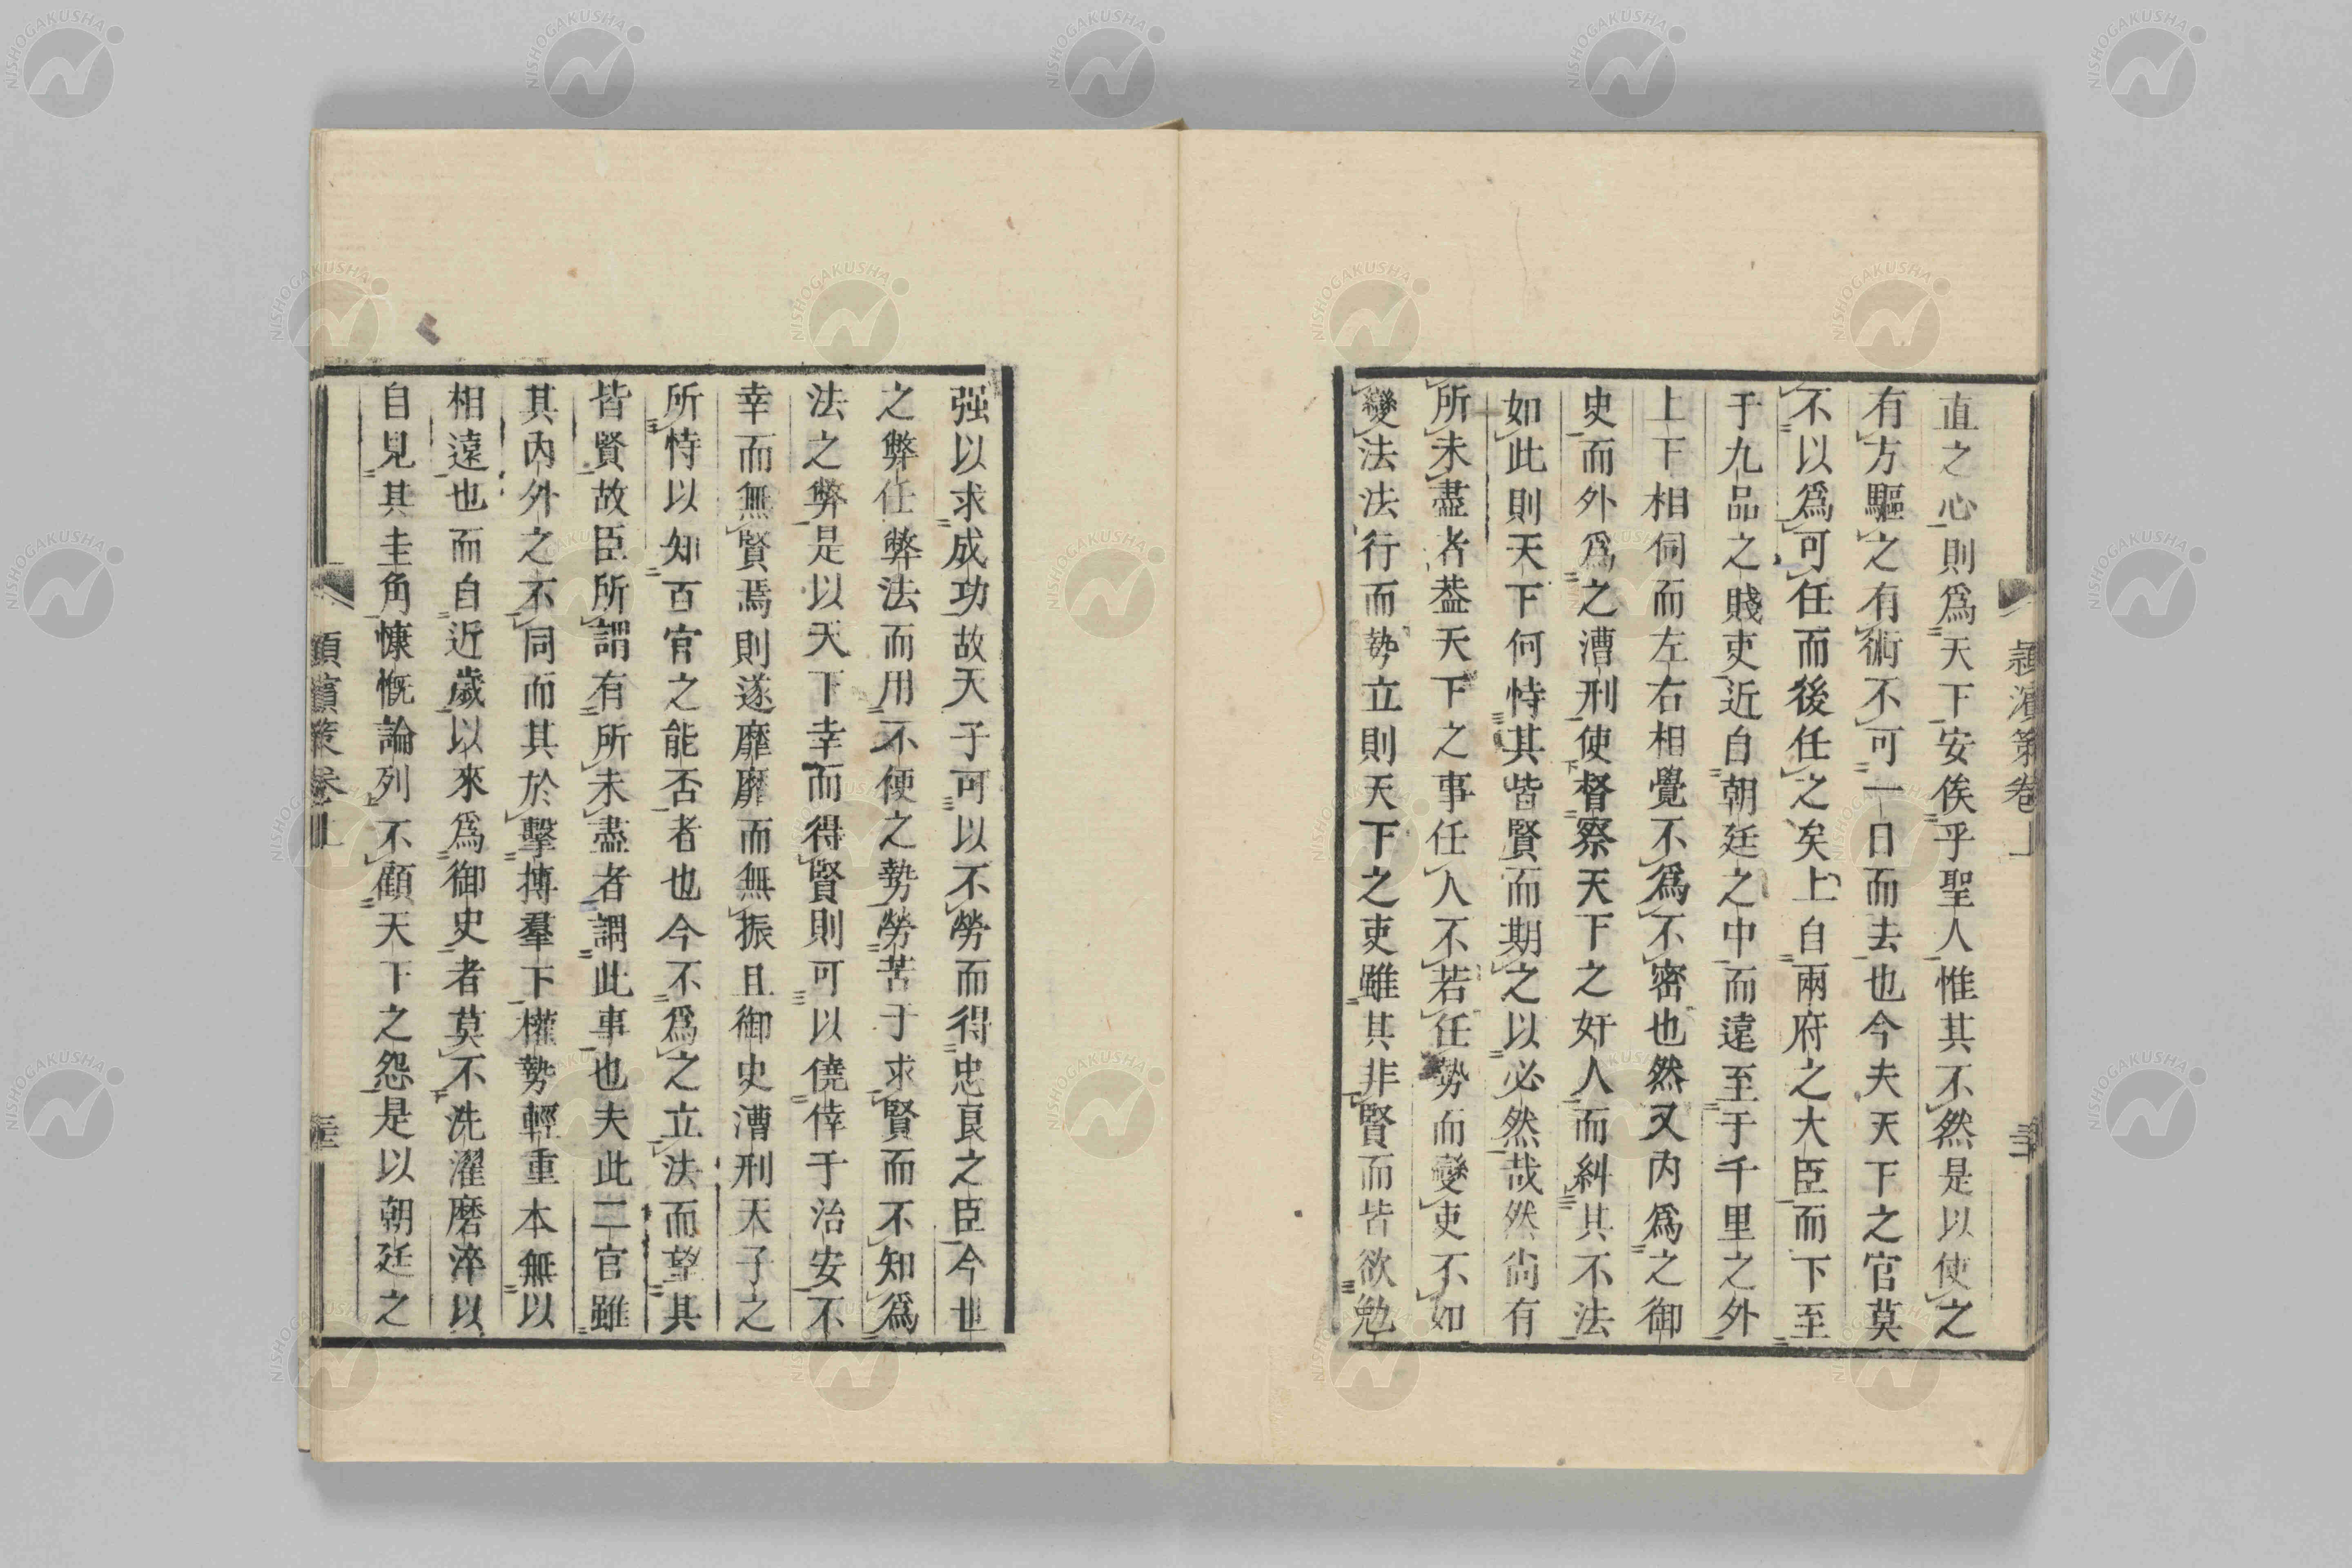 直之心則爲天下安俟乎聖人惟其不然是以使之
有方驅之有術不可一日而去也今夫天下之官莫
不以爲可任而後任之矣上自兩府之大臣而下至
于九品之賤吏近自朝廷之中而遠至于千里之外
上下相伺而左右相覺不爲不密也然又內爲之御
史而外爲之漕刑使督察天下之奸人而糾其不法
如此則天下何恃其皆賢而期之以必然哉然尚有
所未盡者葢天下之事任人不若任勢而變吏不如
變法法行而勢立則天下之吏雖其非賢而皆欲勉
强以求成功故天子可以不勞而得忠良之臣今世
之弊任弊法而用不便之勢勞苦于求賢而不知爲
法之弊是以天下幸而得賢則可以僥倖于治安不
幸而無賢焉則遂靡靡而無振且御史漕刑天子之
所恃以知百官之能否者也今不爲之立法而望其
皆賢故臣所謂有所未盡者謂此事也夫此二官雖
其內外之不同而其於擊搏羣下權勢輕重本無以
相遠也而自近歲以來爲御史者莫不洗濯磨淬以
自見其圭角慷慨論列不顧天下之怨是以朝廷之
潁濱策卷上
潁濱策卷上
NISHOGAKUSHA